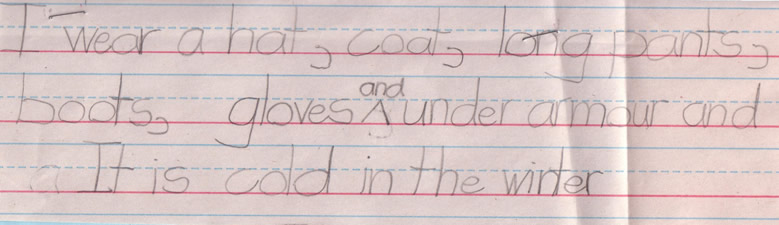 I wear a hat, coat, long pants,
boots, gloves and under armour and
It is cold in the winter